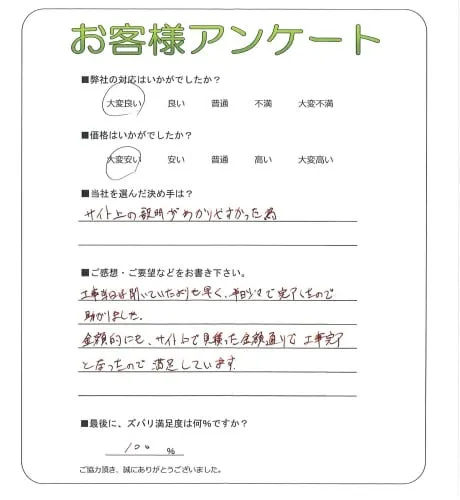 お客様アンケート
■弊社の対応はいかがでしたか?
大変良い 良い 普通 不満 大変不満
■価格はいかがでしたか?
大変安い 安い 普通 高い 大変高い
■当社を選んだ決め手は?
サイト上の説明がわかりやすかった為
■ご感想・ご要望などをお書き下さい。
工事当日は聞いていたよりも早く、半日少々で完了したので
助かりました。
金額的にも、サイト上で見積った金額通りで工事完了
となったので満足しています。
■最後に、ズバリ満足度は何%ですか?
100 %
ご協力頂き、誠にありがとうございました。